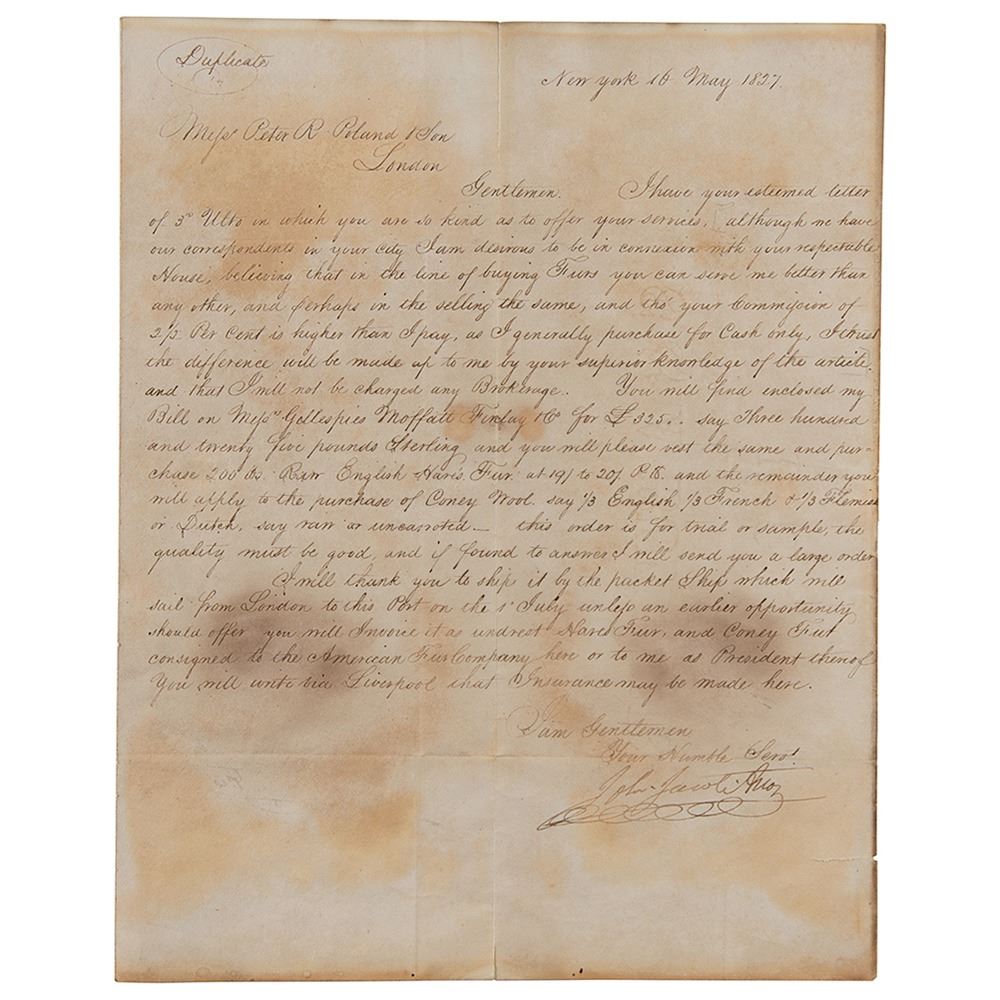 Duplicate
New York 16 May 1827.
Messrs Peter R Poland & Son
London
Gentlemen. I have your esteemed letter
of 3d Ulto in which you are so kind as to offer your services, although we have
our correspondents in your City I am desirous to be in connexion with your respectable
House, believing that in the line of buying Furs you can serve me better than
any other, and perhaps in the selling the same, and tho' your Commission of
2½ Per Cent is higher than I pay, as I generally purchase for Cash only, I trust
the difference will be made up to me by your superior knowledge of the article,
and that I will not be charged any Brokerage. You will find enclosed my
Bill on Messrs Gillespies Moffatt Finlay & Co for £325.. say Three hundred
and twenty five pounds Sterling and you will please vest the same and pur-
chase 200 lbs. Raw English Hares Fur at 19/ to 20/ P lb. and the remainder you
will apply to the purchase of Coney Wool. say 1/3 English 1/3 French & 1/3 Flemish
or Dutch, say raw or uncarroted — this order is for trial or sample, the
quality must be good, and if found to answer I will send you a large order
I will thank you to ship it by the packet Ship which will
sail from London to this Port on the 1st July unless an earlier opportunity
should offer you will Invoice it as undrest Hares Fur, and Coney Fur
consigned to the American Fur Company here or to me as President thereof
You will write via Liverpool that Insurance may be made here.
I am Gentlemen
Your Humble Servt
John Jacob Astor